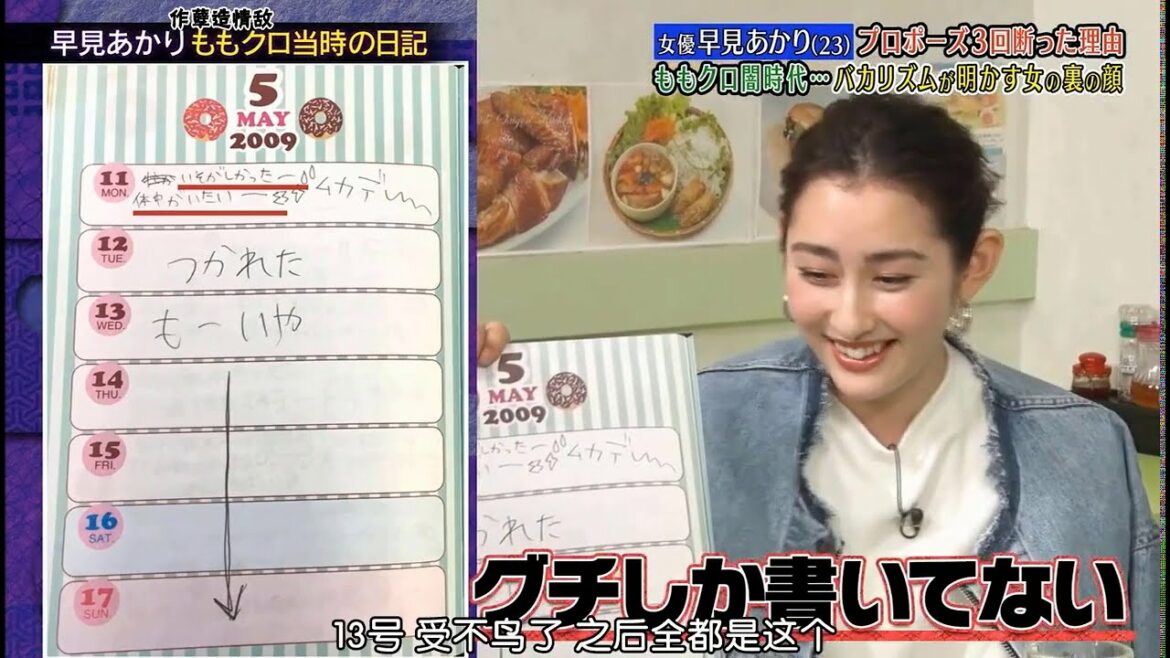 作孽造情敌
早見あかり ももクロ当時の日記
女優 早見あかり(23) プロポーズ3回断った理由
ももクロ闇時代…バカリズムが明かす女の裏の顔
5
MAY
2009
11
MON.
いそがしかったー
体中がいたいー
ムカデ
12
TUE.
つかれた
13
WED.
もーいや
14
THU.
15
FRI.
16
SAT.
17
SUN.
5
MAY
2009
しかったー
ムカデ
かれた
グチしか書いてない
13号 受不鸟了 之后全都是这个